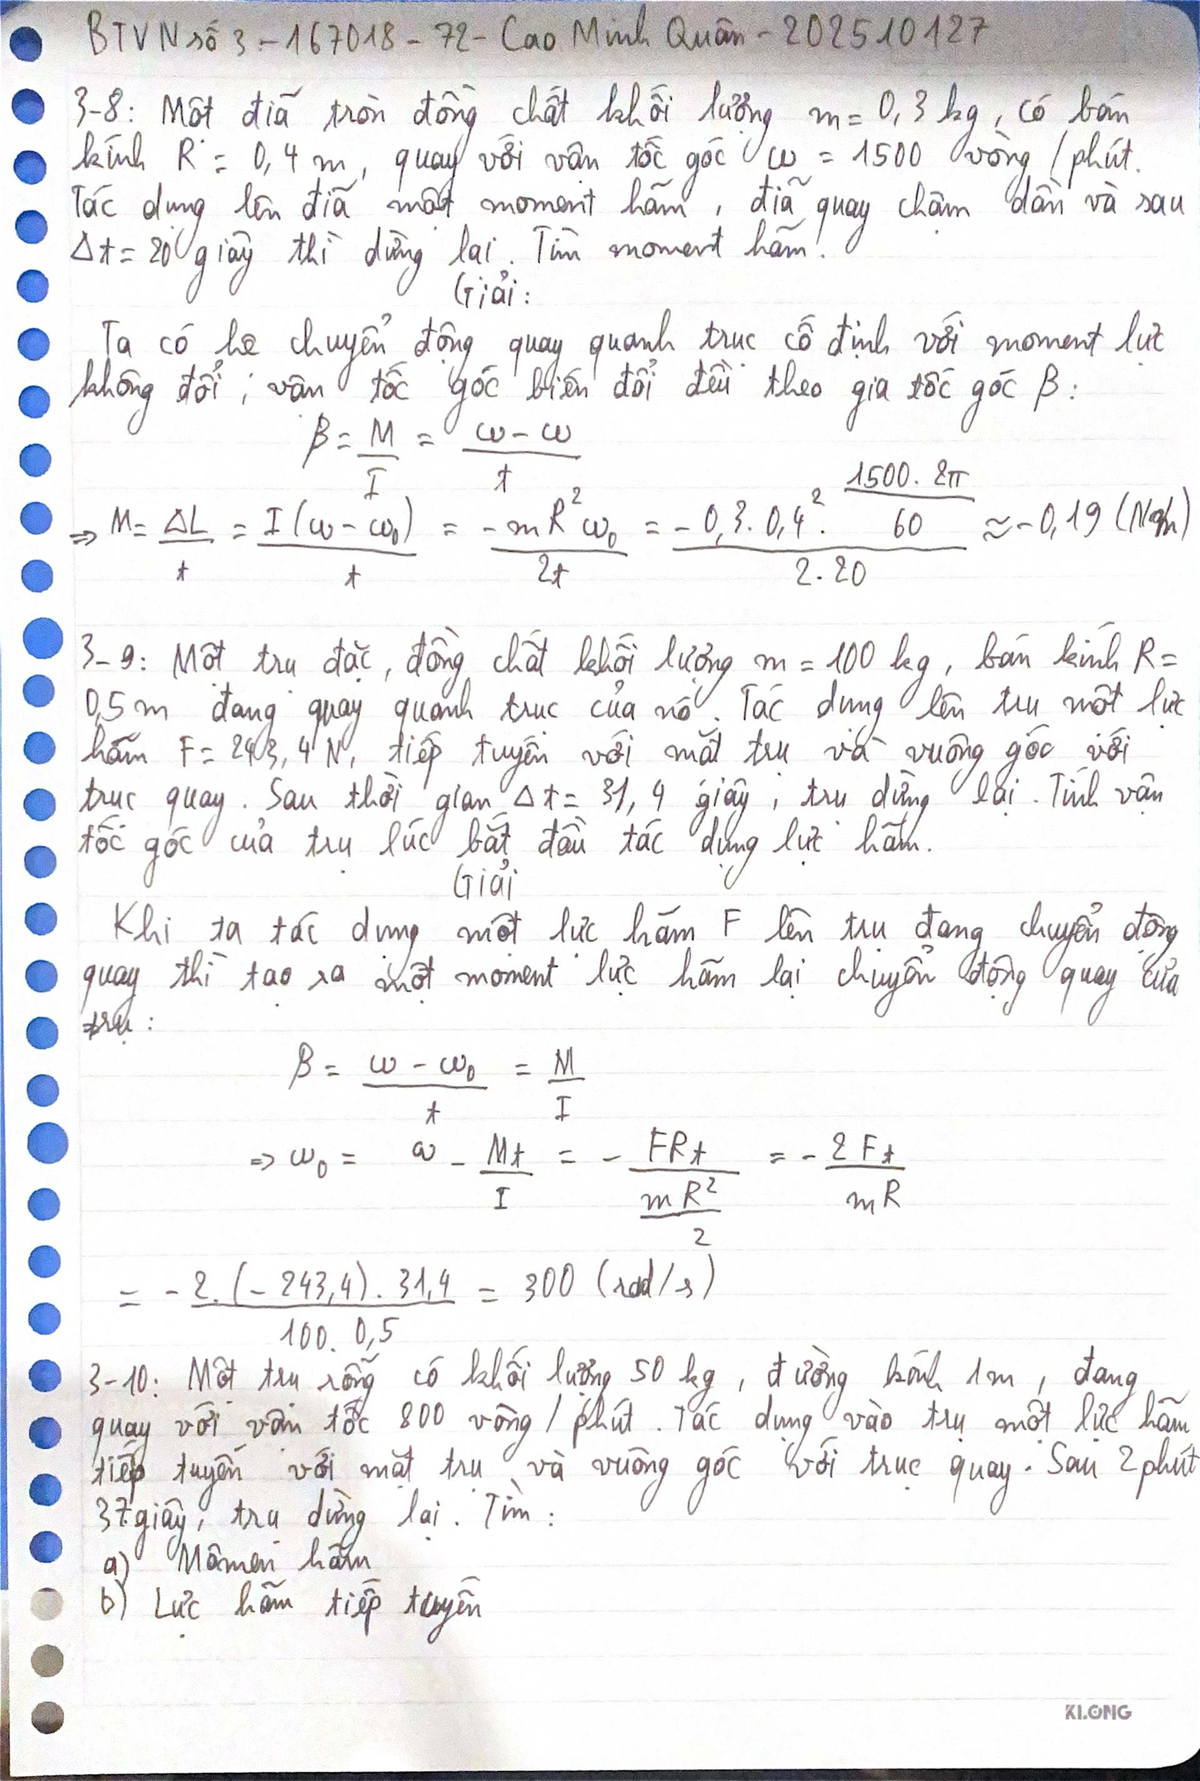 BTVN số 3 - 167018 - 72 - Cao Minh Quân - 202510127
3-8: Một đĩa tròn đồng chất khối lượng m = 0,3 kg, có bán
kính R = 0,4 m, quay với vận tốc góc ω = 1500 vòng/phút.
Tác dụng lên đĩa một moment hãm, đĩa quay chậm dần và sau
Δt = 20 giây thì dừng lại. Tìm moment hãm.
Giải:
Ta có hệ chuyển động quay quanh trục cố định với moment lực
không đổi, vận tốc góc biến đổi đều theo gia tốc góc β:
β = M/I = (ω - ω)/t
⇒ M = ΔL/t = I(ω - ω₀)/t = -mR²ω₀/2t = (-0,3.0,4².(1500.2π/60))/(2.20) ≈ -0,19 (Nm)
3-9: Một trụ đặc, đồng chất khối lượng m = 100 kg, bán kính R =
0,5 m đang quay quanh trục của nó. Tác dụng lên trụ một lực
hãm F = 243,4 N, tiếp tuyến với mặt trụ và vuông góc với
trục quay. Sau thời gian Δt = 31,4 giây, trụ dừng lại. Tính vận
tốc góc của trụ lúc bắt đầu tác dụng lực hãm.
Giải
Khi ta tác dụng một lực hãm F lên trụ đang chuyển động
quay thì tạo ra một moment lực hãm lại chuyển động quay của
trụ:
β = (ω - ω₀)/t = M/I
⇒ ω₀ = ω - Mt/I = - FRt/(mR²/2) = - 2Ft/mR
= -2.(-243,4).31,4/(100.0,5) = 300 (rad/s)
3-10: Một trụ rỗng có khối lượng 50 kg, đường kính 1m, đang
quay với vận tốc 800 vòng/phút. Tác dụng vào trụ một lực hãm
tiếp tuyến với mặt trụ và vuông góc với trục quay. Sau 2 phút
37 giây, trụ dừng lại. Tìm:
a) Mômen hãm
b) Lực hãm tiếp tuyến
KLONG